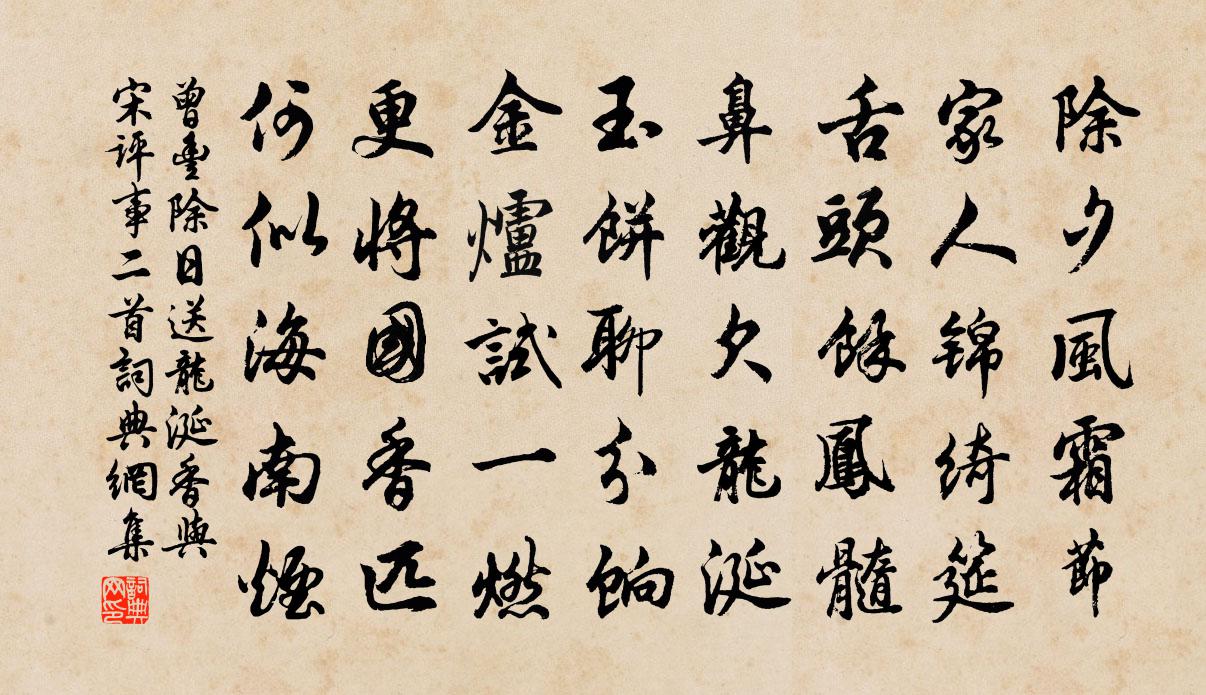 除夕風霜節
家人錦綺筵
舌頭餘鳳髓
鼻觀欠龍涎
玉餅聊分餉
金爐試一燃
更將國香匹
何似海南煙
曾豐除日送龍涎香與
宋評事二首詞典網集
詞典網印